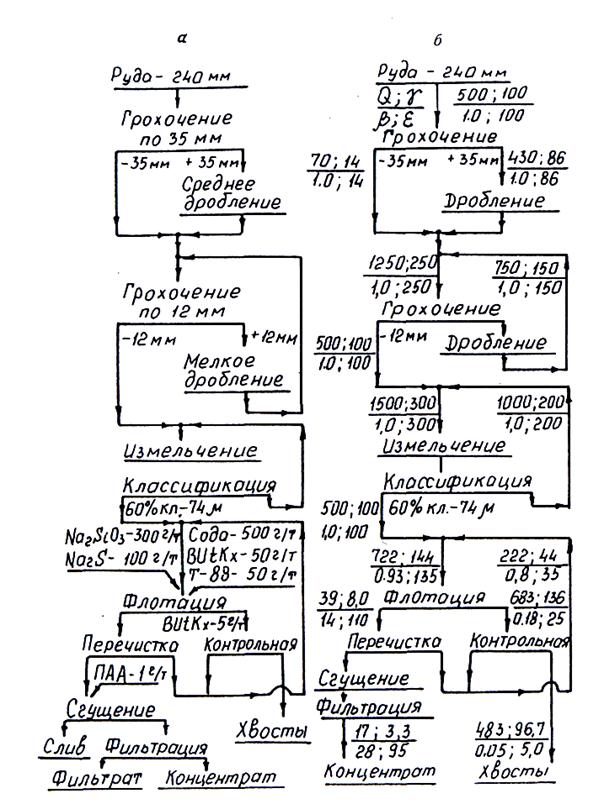 а
Руда - 240 мм
Грохочение
по 35 мм
-35мм + 35мм
Среднее
дробление
Грохочение
по 12 мм
-12мм
+12мм
Мелкое
дробление
Измельчение
Классификация
60% кл.-74 м
Na₂SiO₃-300 г/т
Na₂S-100 г/т
Сода-500 г/т
BUtKx-50 г/т
Т-88- 50 г/т
Флотация
BUtKx-5 г/т
Перечистка
Контрольная
ПАА-1 г/т
Сгущение
Слив
Фильтрация
Хвосты
Фильтрат
Концентрат
б
Руда - 240 мм
Q; γ
β; ε
500; 100
1.0; 100
Грохочение
70; 14
1.0; 14
-35мм + 35мм
430; 86
1.0; 86
Дробление
1250; 250
1,0; 250
750; 150
1,0; 150
Грохочение
500; 100
1.0; 100
-12мм
Дробление
1500; 300
1,0; 300
1000; 200
1,0; 200
Измельчение
Классификация
500; 100
1,0; 100
60% кл.-74 μ
722; 144
0.93; 135
222; 44
0,8; 35
39; 8,0
14; 110
Флотация
683; 136
0.18; 25
Перечистка
Контрольная
Сгущение
Фильтрация
17; 3,3
28; 95
483; 96,7
0.05; 5,0
Концентрат
Хвосты